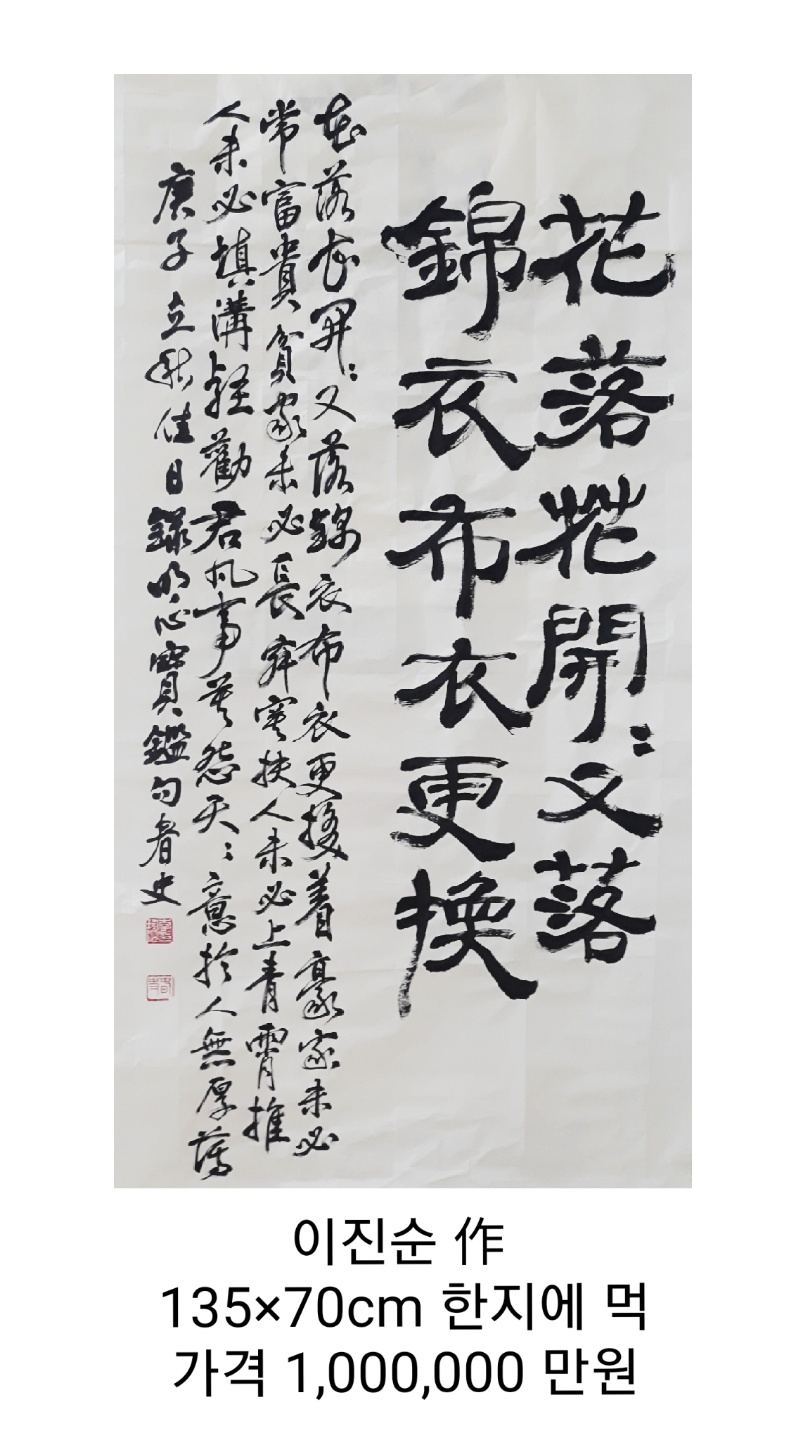 花落花開〻又落
錦衣布衣更換
花落花開〻又落錦衣布衣更換着豪家未必
常富貴貧家未必長寂寞扶人未必上青霄推
人未必填溝壑勸君凡事莫怨天〻意於人無厚薄
庚子立秋佳日錄明心寶鑑句
이진순 作
135×70cm 한지에 먹
가격 1,000,000 만원